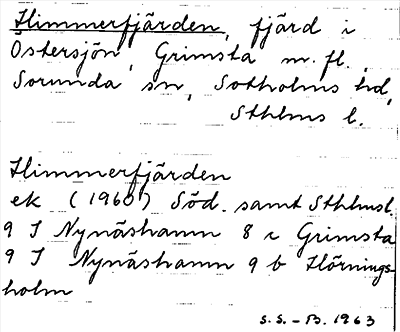 Himmerfjärden, fjärd i
Östersjön, Grimsta m.fl.,
Sorunda sn, Sotholms hd,
Sthlms l.
Himmerfjärden
ek (1960) Söd. samt Sthlmsl.
9 I Nynäshamn 8 c Grimsta
9 I Nynäshamn 9 b Hörnings-
holm
S.S.-B. 1963